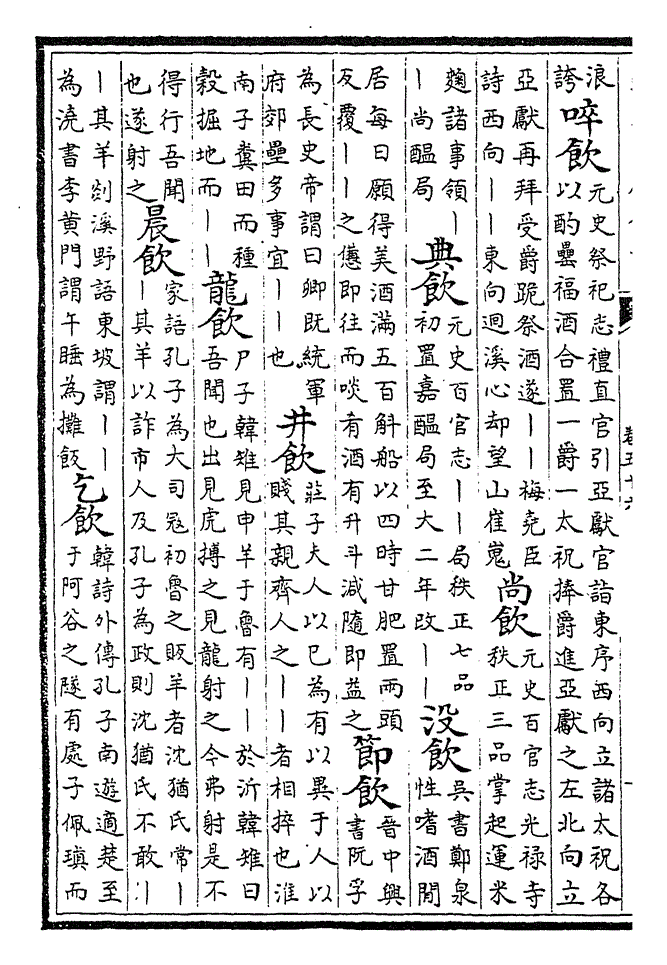 浪
誇
啐飲
元史祭祀志禮直官引亞獻官詣東序西向立諸太祝各
以酌罍福酒合置一爵一太祝捧爵進亞獻之左北向立
亞獻再拜受爵跪祭酒遂丨丨梅堯臣
詩西向丨丨東向迴溪心却望山崔嵬
尚飲
元史百官志光禄寺
秩正三品掌起運米
麴諸事領丨
丨尚醖局
典飲
元史百官志丨丨局秩正七品
初置嘉醖局至大二年改丨丨
没飲
吳書鄭泉
性嗜酒閒
居每日願得美酒滿五百斛船以四時甘肥置兩頭
反覆丨丨之憊即往而啖肴酒有升斗減隨即益之
節飲
晉中興
書阮孚
為長史帝謂曰卿既統軍
府郊壘多事宜丨丨也
井飲
莊子夫人以已為有以異于人以
賤其親齊人之丨丨者相捽也淮
南子糞田而種
穀掘地而丨丨
龍飲
尸子韓雉見申羊于魯有丨丨於沂韓雉曰
吾聞也出見虎搏之見龍射之今弗射是不
得行吾聞
也遂射之
晨飲
家語孔子為大司冦初魯之販羊者沈猶氏常丨
丨其羊以詐市人及孔子為政則沈猶氏不敢丨
丨其羊剡溪野語東坡謂丨丨
為澆書李黄門謂午睡為攤飯
乞飲
韓詩外傳孔子南遊適楚至
于阿谷之隧有處子佩瑱而
卷五十六